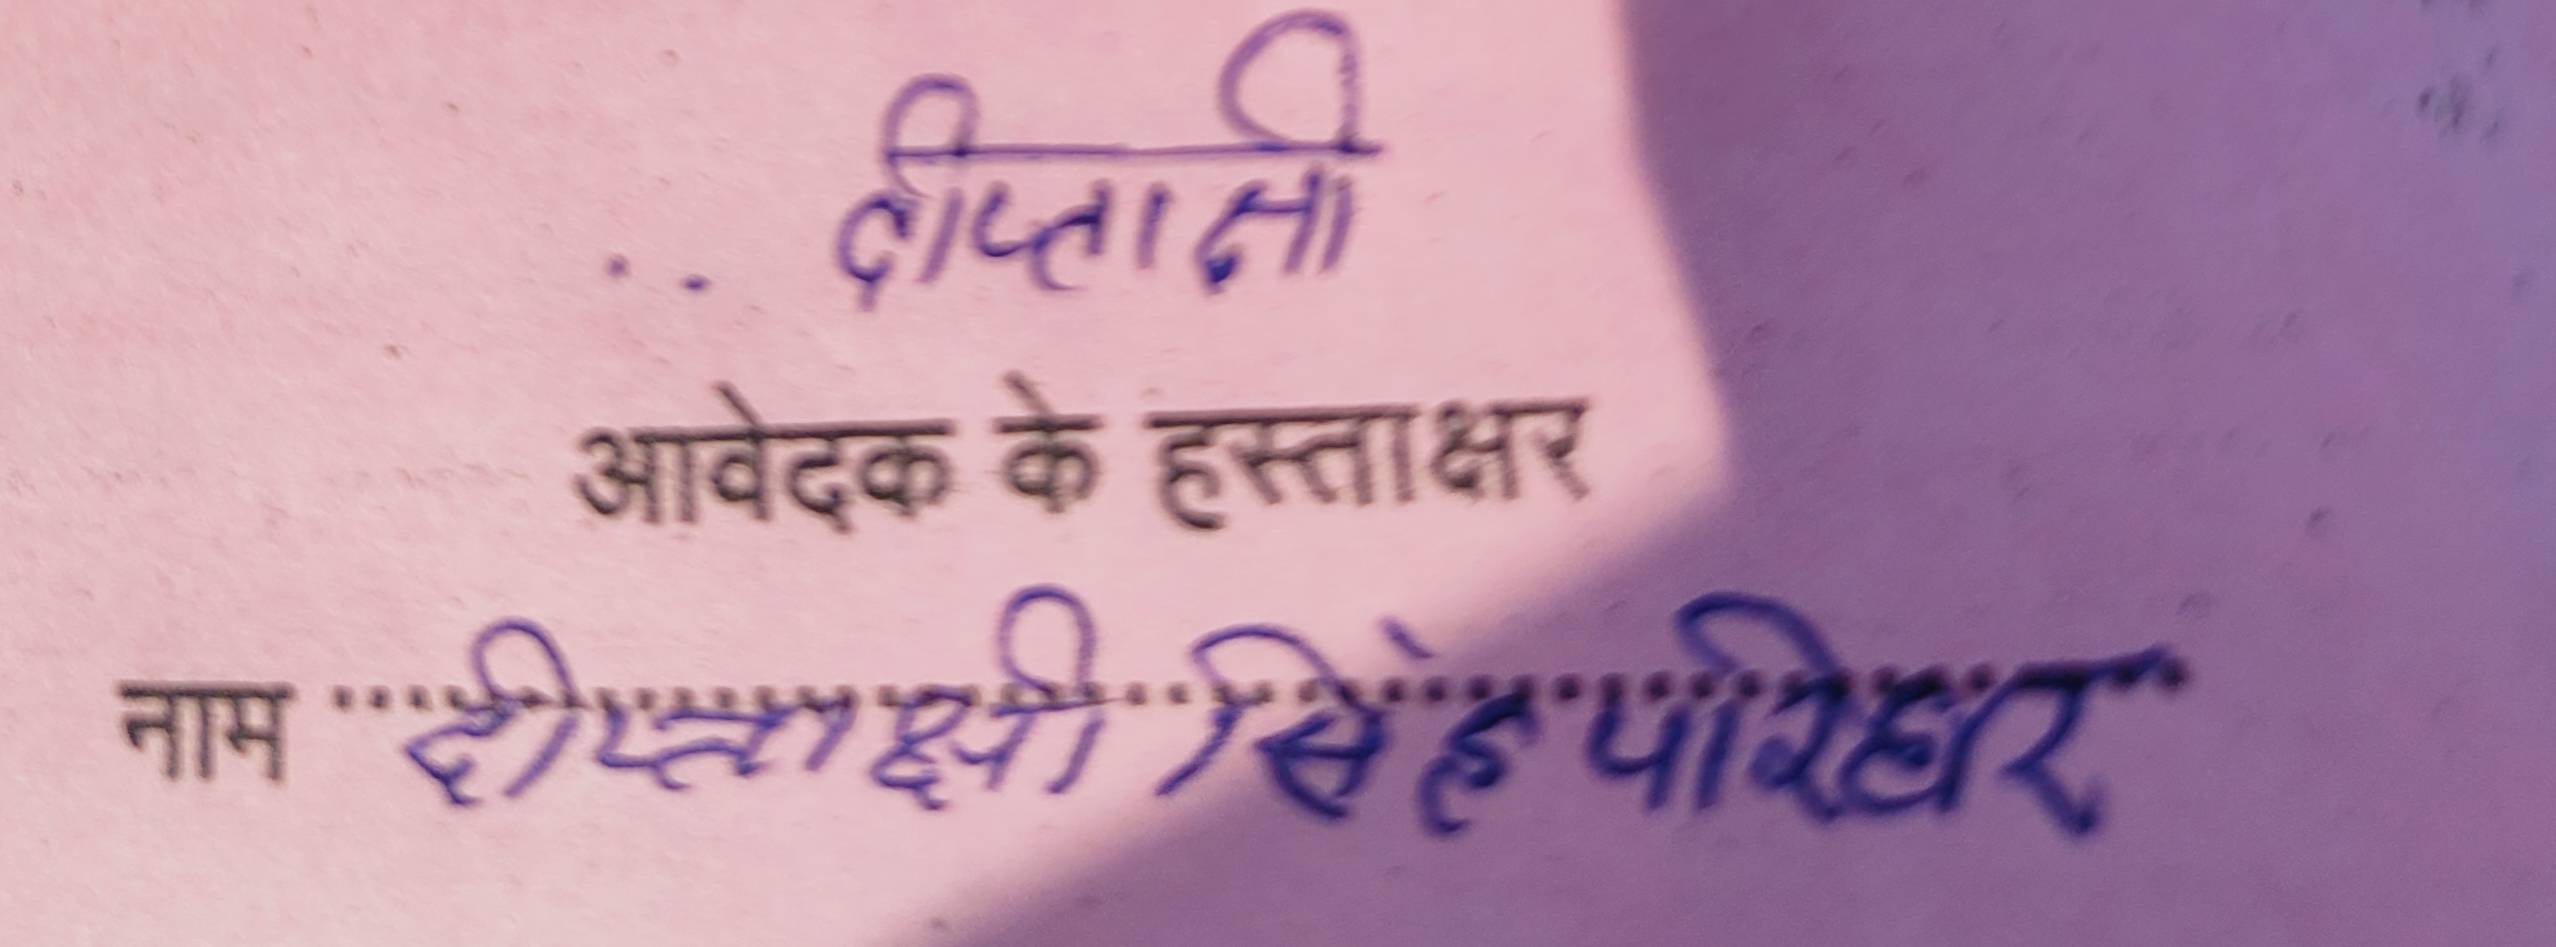 दीप्ताक्षी
आवेदक के हस्ताक्षर
नाम दीप्ताक्षी सिंह परिहार